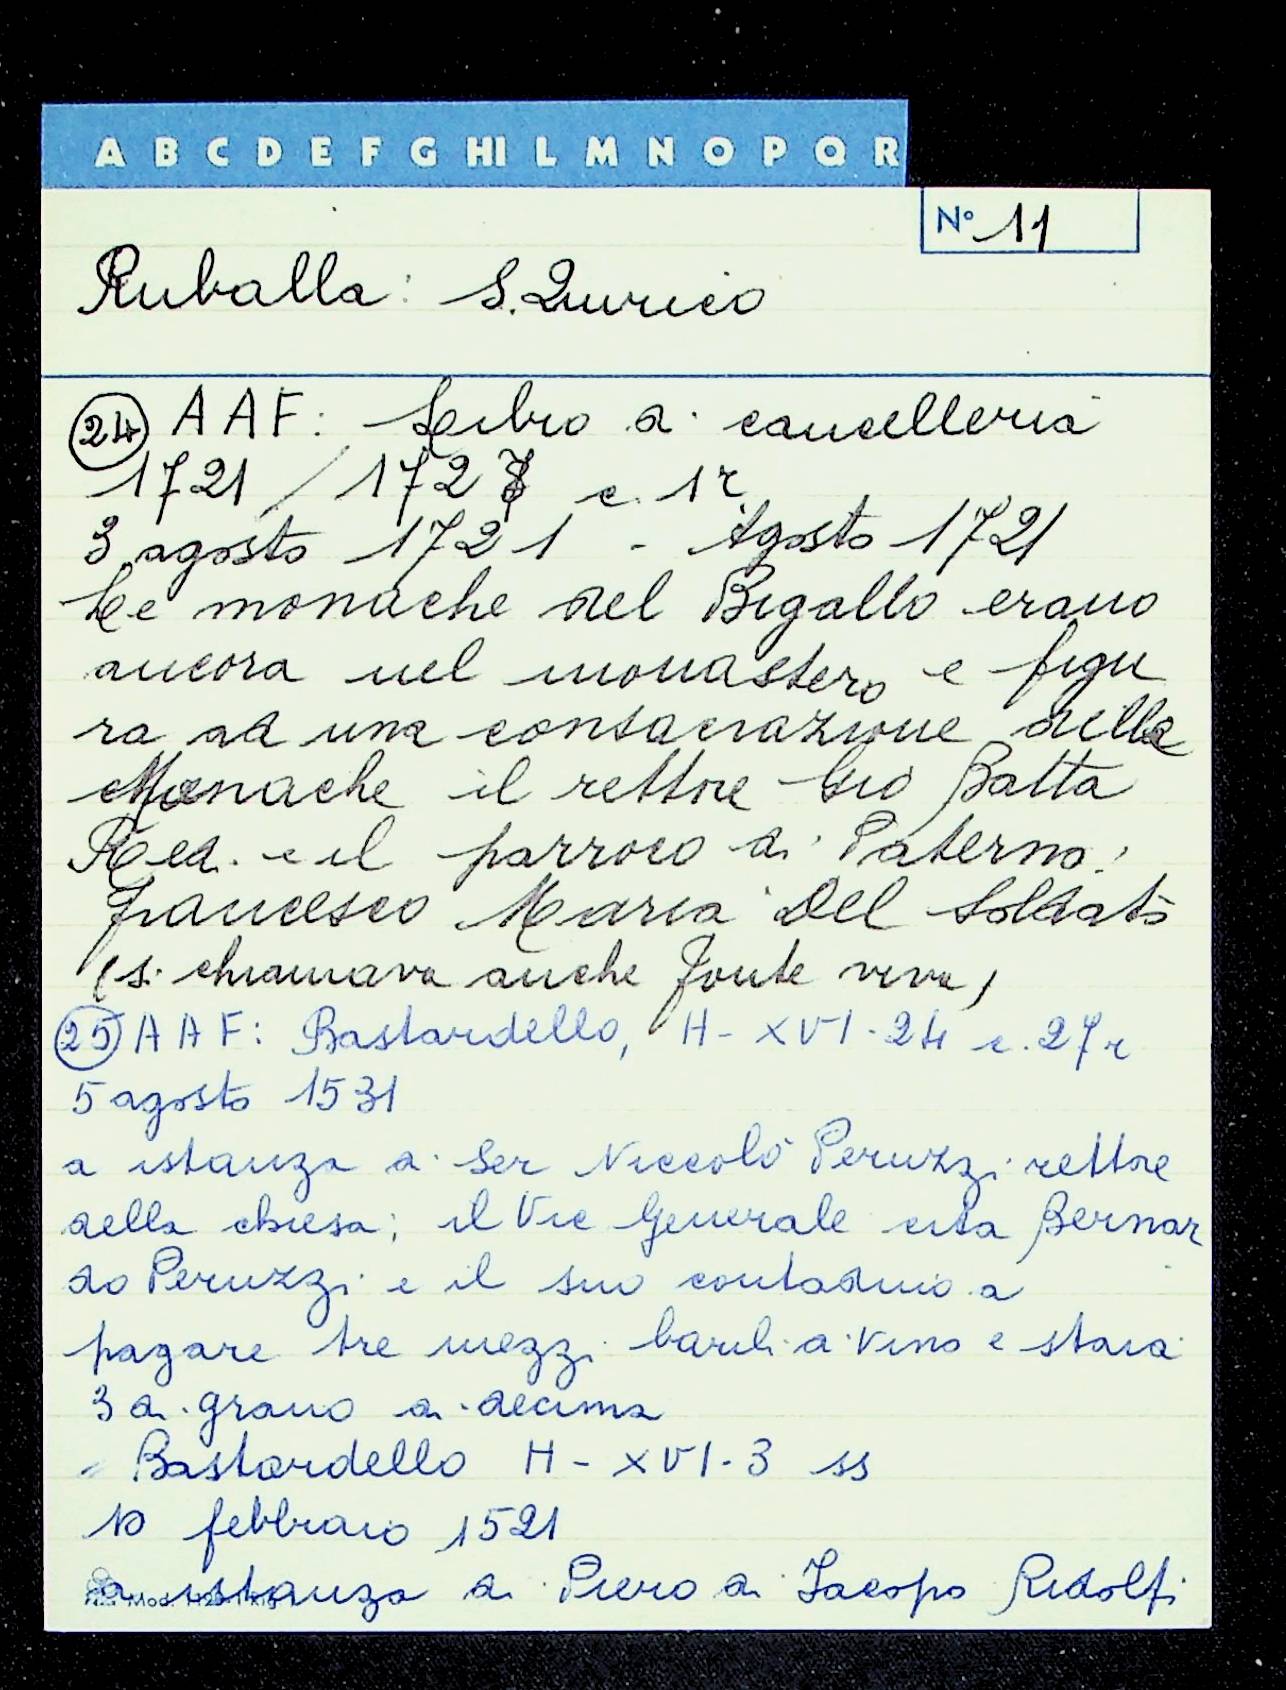 A B C D E F G HI L M N O P Q R
N° 11
Ruballa: S. Quirico
24 AAF: Libro di cancelleria
1721 / 1727 c. 1r
3 agosto 1721 - Agosto 1721
Le monache del Bigallo erano
ancora nel monastero e figu
ra ad una consacrazione delle
Monache il rettore Gio Batta
Redi e il parroco di Paterno:
Francesco Maria Del Soldato
(si chiamava anche Fonte viva)
25 AAF: Bastardello, H-XVI-24 c. 27r
5 agosto 1531
a istanza di Ser Niccolò Peruzzi rettore
della chiesa; il Vic Generale cita Bernar
do Peruzzi e il suo contadino a
pagare tre mezzi barili di vino e staia
3 di grano di decima
" Bastardello H-XVI-3 ss
10 febbraio 1521
a istanza di Piero di Jacopo Ridolfi